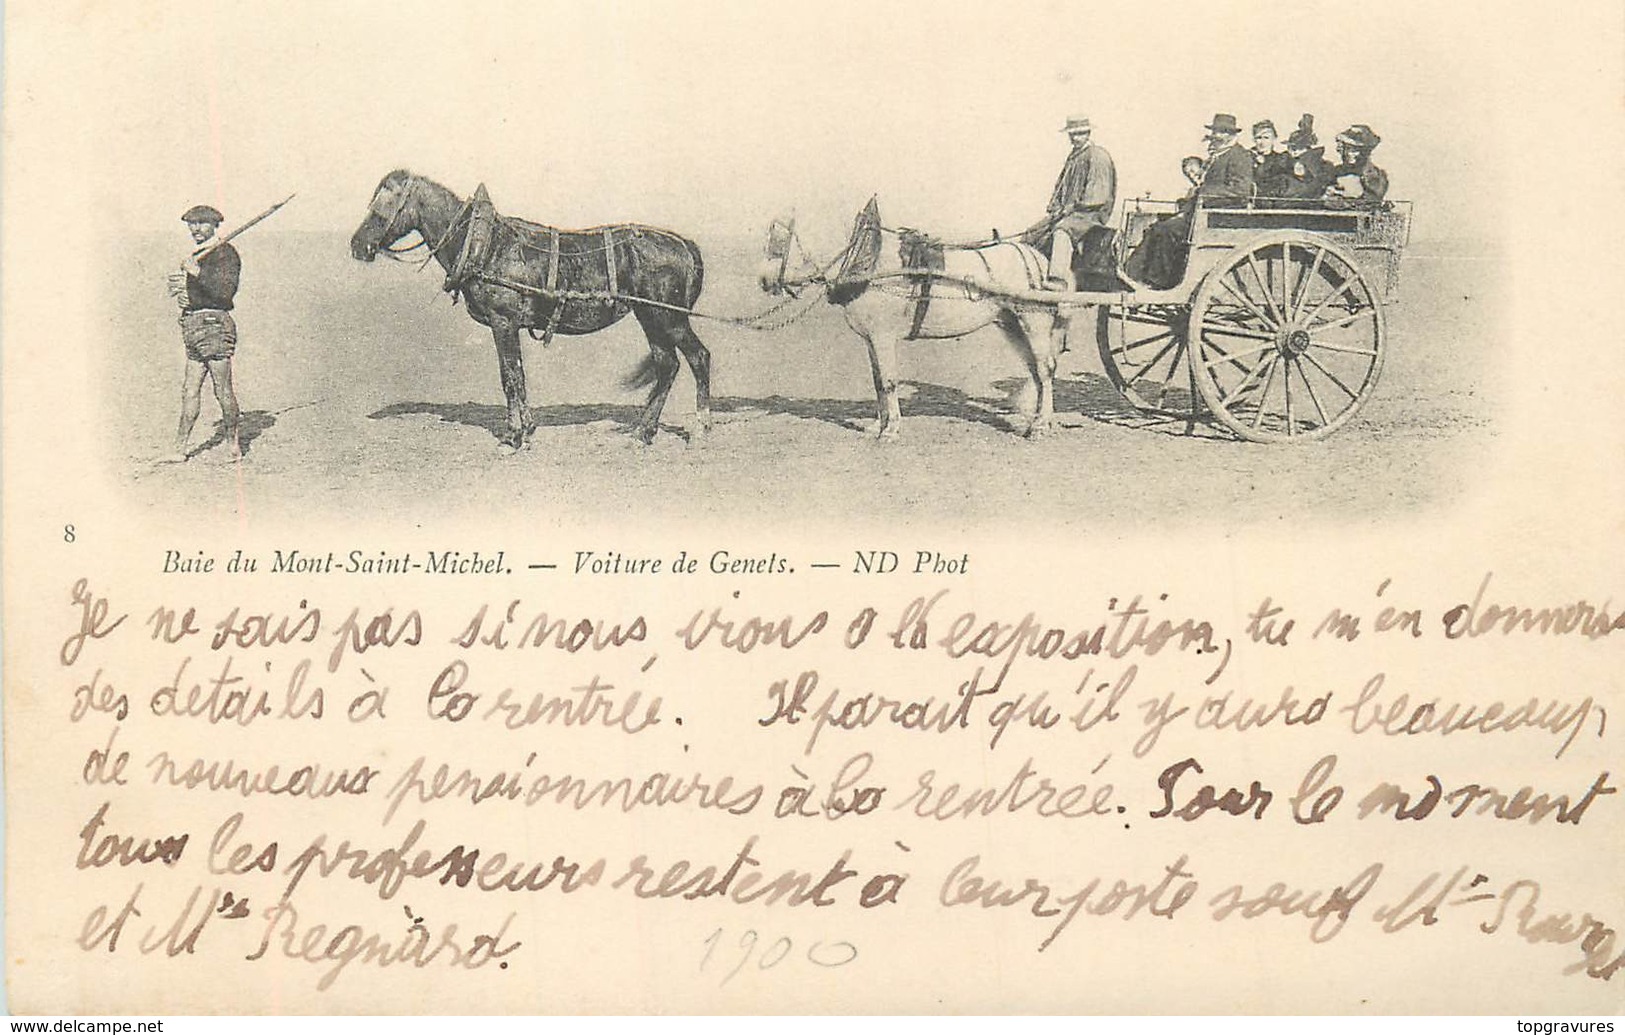 8
Baie du Mont-Saint-Michel. — Voiture de Genets. — ND Phot
Je ne sais pas si nous irions à la exposition, tu m'en donneras
des détails à la rentrée. Il parait qu'il y aura beaucoup
de nouveaux pensionnaires à la rentrée. Pour le moment
tous les professeurs restent à leur poste sauf Mr
et Mr Regnard.
1900
www.delcampe.net
topgravures